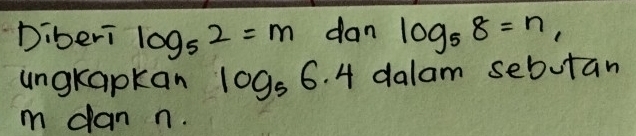 Diberi log₅ 2 = m dan log₅ 8 = n,
ungkapkan log₅ 6.4 dalam sebutan
m dan n.